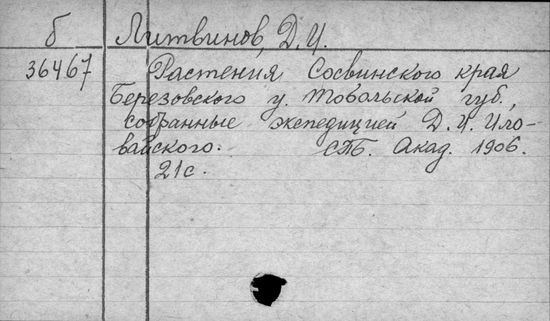 б Литвинов, Д.И.
36467 Растения Сосвинского края
Березовского у. Тобольской губ.,
собранные экспедицией Д.И. Ило-
вайского. СПБ. Акад. 1906.
21с.